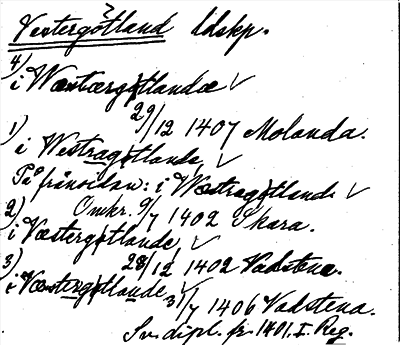 Vestergötland ldskp.
4)
i Wæstærgøtlandæ ✓
29/12 1407 Molanda.
1)
i Westragøtlande, ✓
På frånsidan: i Wæstragøtland ✓
Omkr. 9/7 1402 Skara.
2)
i Væstergøtlande, ✓
28/12 1402 Vadstena.
3)
i Væstergøtlande, ✓
31/7 1406 Vadstena.
Sv. dipl. fr. 1401. I. Reg.